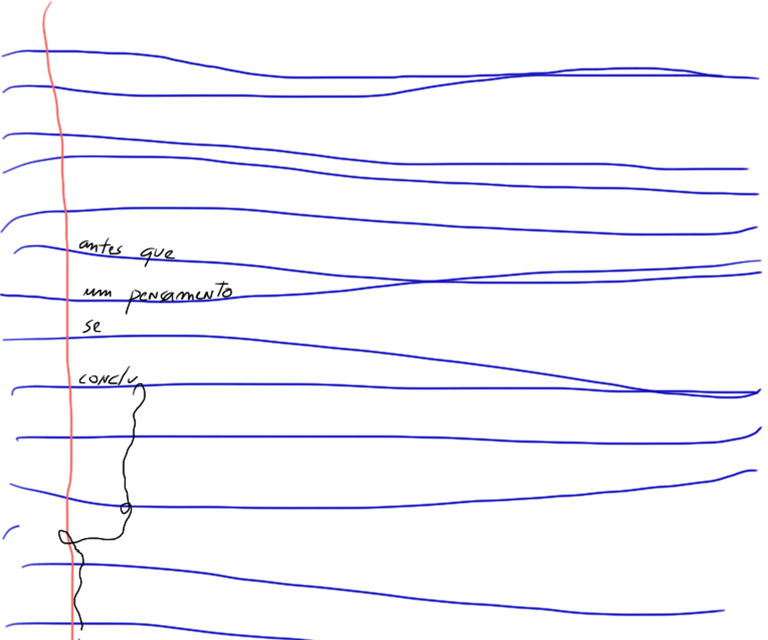 antes que
um pensamento
se
conclu